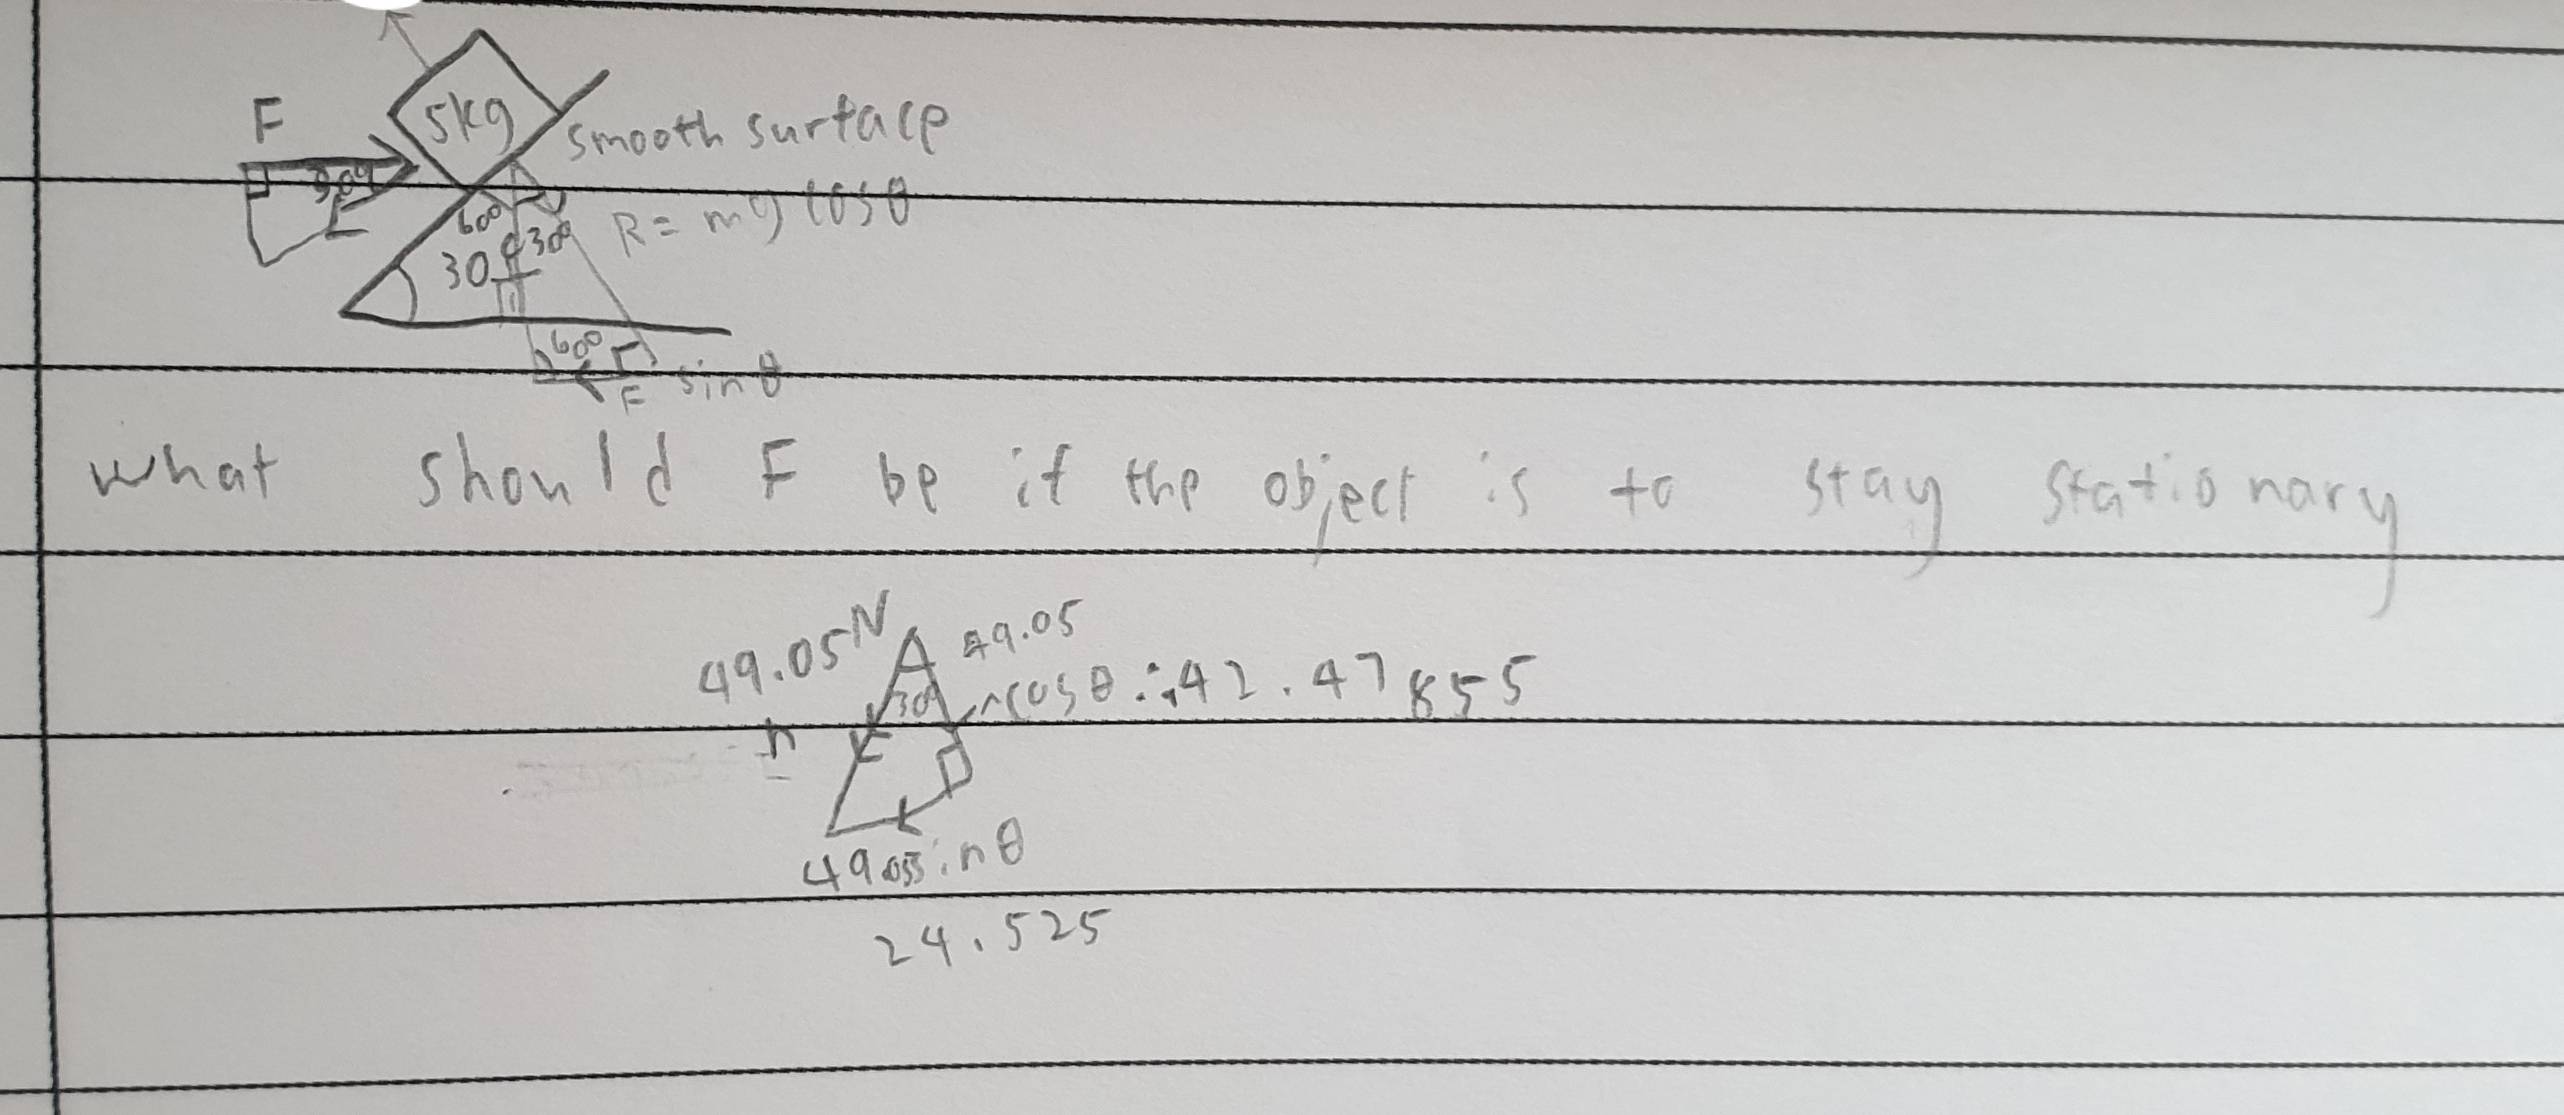 F
5kg
smooth surface
30°
60° 30° R = mg cosθ
30
60°
F sinθ
what should F be if the object is to stay stationary
49.05N 49.05
30° cosθ ∴ 42.47855
h
49.05sinθ
24.525